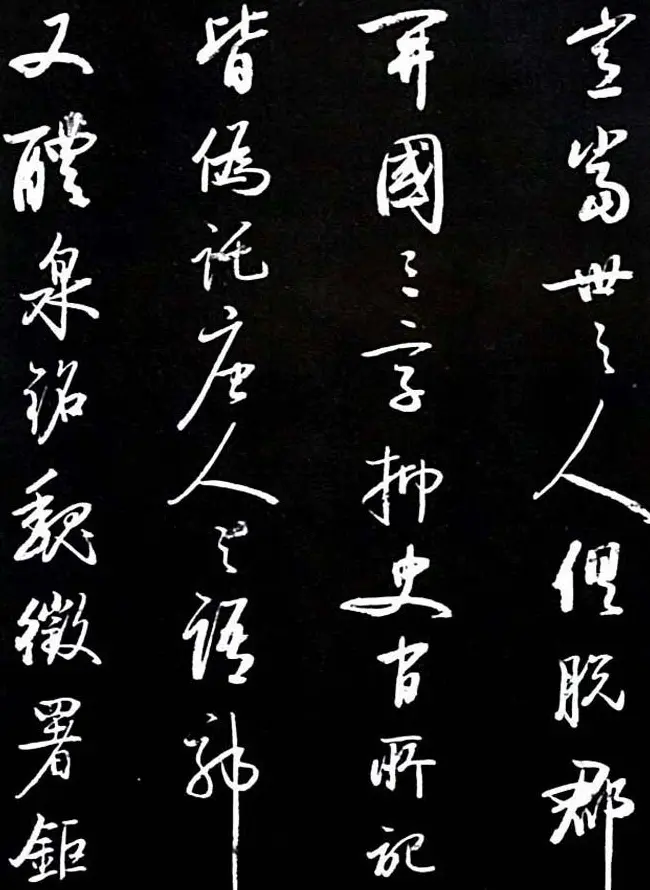 豈當世之人但脫郡
開國三字抑史官所記
皆偽託唐人之語耶
又醴泉銘魏徵署鉅